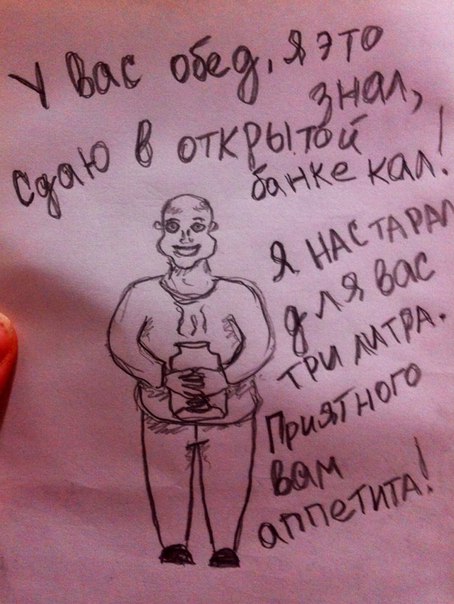 У вас обед, я это
знал,
сдаю в открытой
банке кал!
Я настарал
для вас
три литра.
Приятного
вам
аппетита!